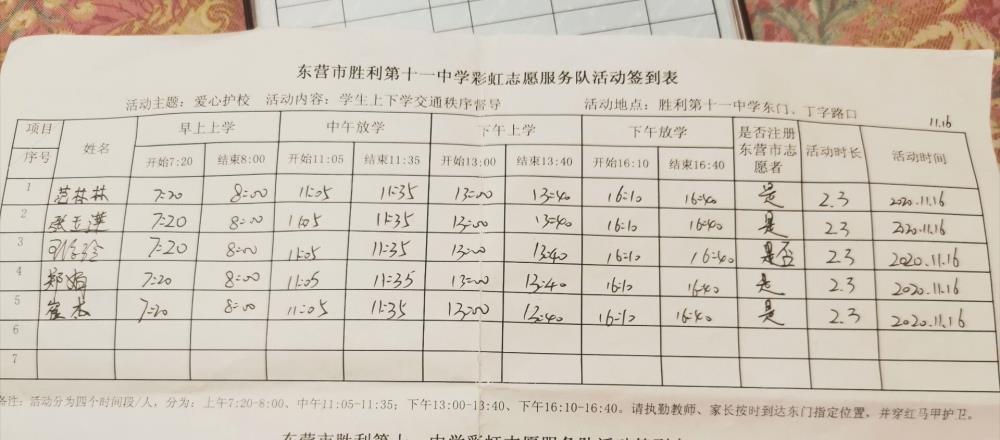 东营市胜利第十一中学彩虹志愿服务队活动签到表
活动主题：爱心护校 活动内容：学生上下学交通秩序督导 活动地点：胜利第十一中学东门、丁字路口 11.16
项目 序号 姓名 早上上学 中午放学 下午上学 下午放学 是否注册东营市志愿者 活动时长 活动时间
开始7:20 结束8:00 开始11:05 结束11:35 开始13:00 结束13:40 开始16:10 结束16:40
1 范林林 7:20 8:00 11:05 11:35 13:00 13:40 16:10 16:40 是 2.3 2020.11.16
2 张玉萍 7:20 8:00 11:05 11:35 13:00 13:40 16:10 16:40 是 2.3 2020.11.16
3 7:20 8:00 11:05 11:35 13:00 13:40 16:10 16:40 是否 2.3 2020.11.16
4 郑娟 7:20 8:00 11:05 11:35 13:00 13:40 16:10 16:40 是 2.3 2020.11.16
5 7:20 8:00 11:05 11:35 13:00 13:40 16:10 16:40 是 2.3 2020.11.16
6
7
备注：活动分为四个时间段/人，分为：上午7:20-8:00、中午11:05-11:35；下午13:00-13:40、下午16:10-16:40。请执勤教师、家长按时到达东门指定位置，并穿红马甲护卫。
东营市胜利第十一中学彩虹志愿服务队活动签到表